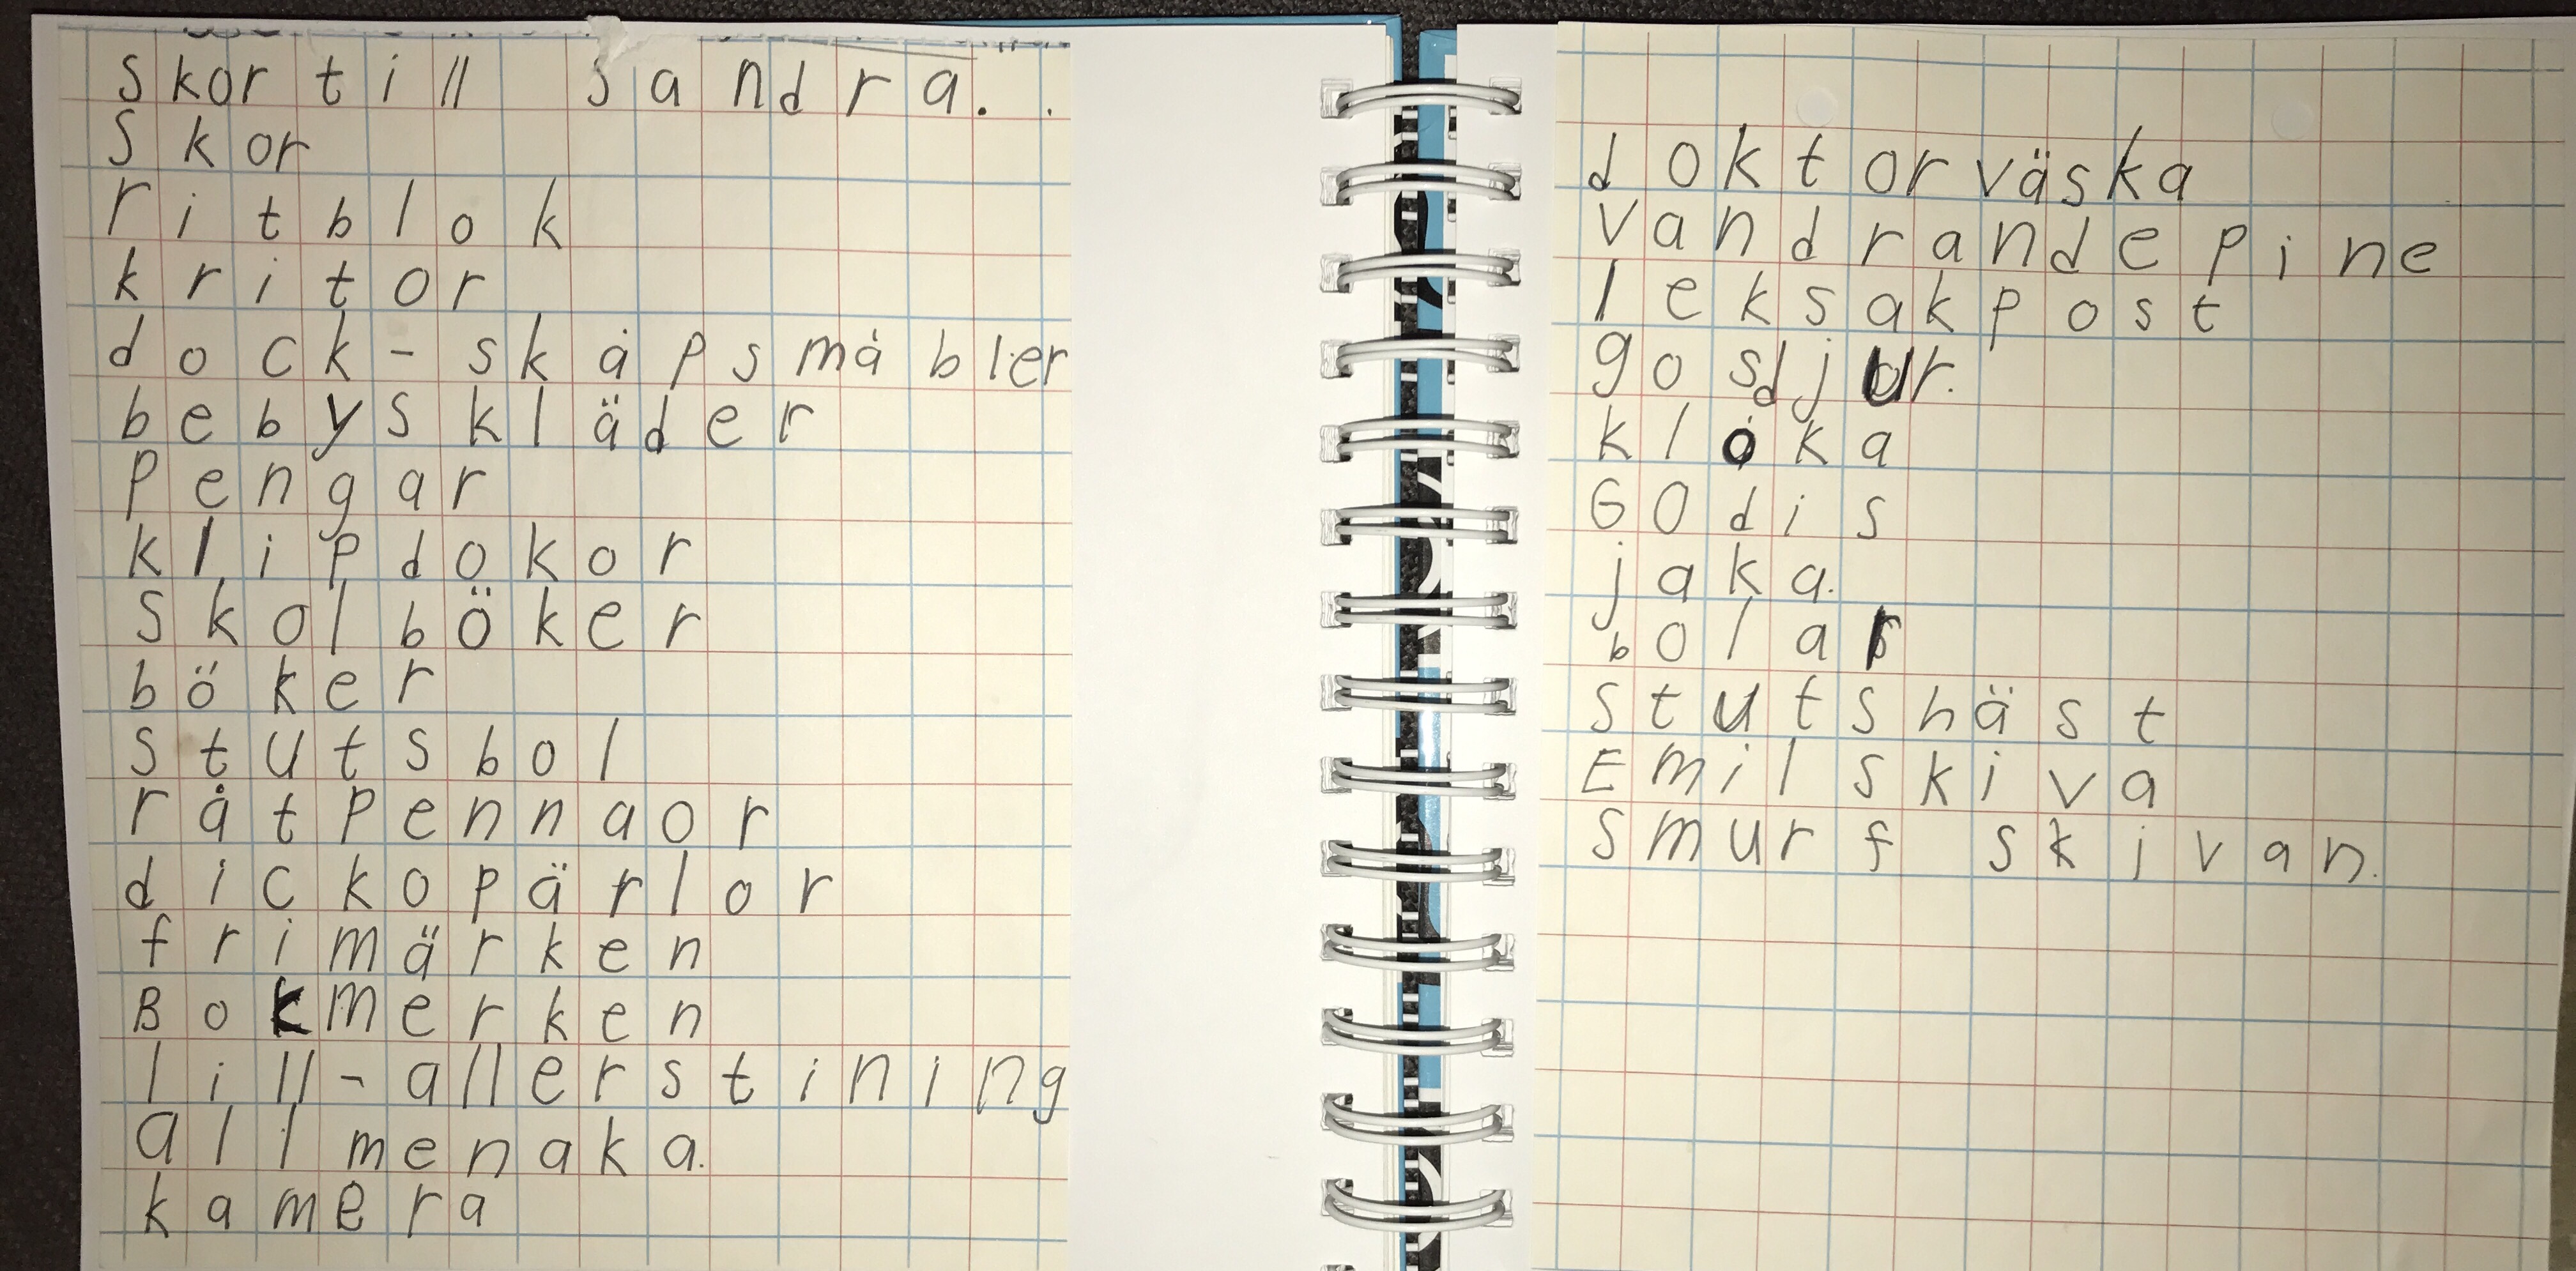 skor till sandra.
skor
ritblok
kritor
dock-skåpsmåbler
bebyskläder
pengar
klipdokor
skolböker
böker
stutsbol
råtpennaor
dickopärlor
frimärken
Bokmerken
lill-allerstining
allmenaka.
kamera
doktorväska
vandrandepine
leksakpost
gosdjur.
kloka
GOdis
jaka.
bolar
stutshäst
Emilskiva
smurf skivan.